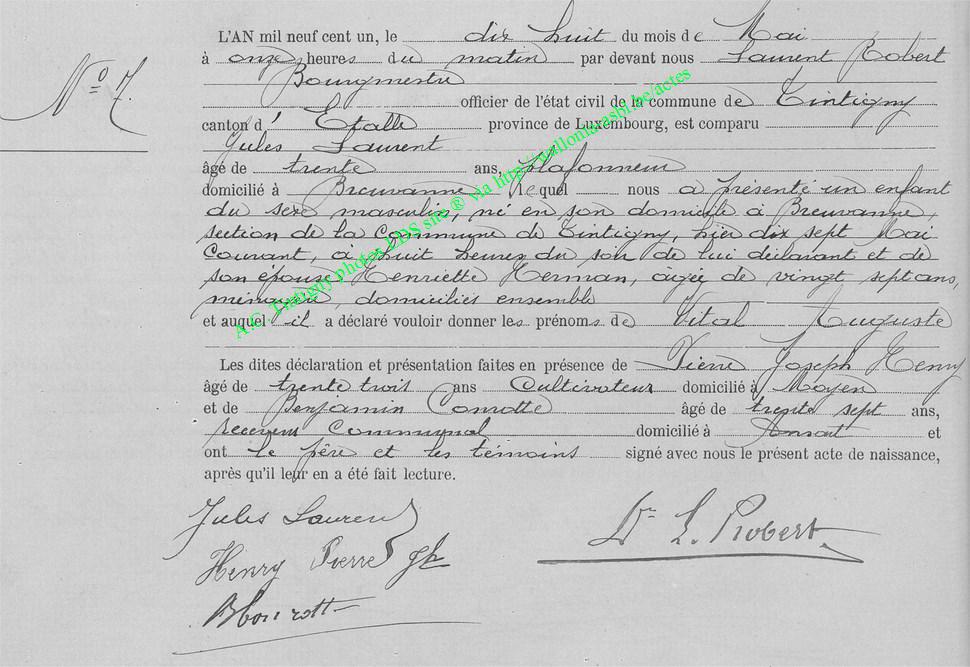 N° 7.
L'AN mil neuf cent un, le dix huit du mois de Mai
à onze heures du matin par devant nous Laurent Robert
Bourgmestre
officier de l'état civil de la commune de Tintigny
canton d' Etalle province de Luxembourg, est comparu
Jules Laurent
âgé de trente ans, plafonneur
domicilié à Breuvanne lequel nous a présenté un enfant
du sexe masculin, né en son domicile à Breuvanne,
section de la Commune de Tintigny, hier dix sept Mai
Courant, à huit heures du soir de lui déclarant et de
son épouse Henriette Herman, âgée de vingt sept ans,
ménagère, domiciliés ensemble
et auquel il a déclaré vouloir donner les prénoms de Vital Auguste
Les dites déclaration et présentation faites en présence de Pierre Joseph Henry
âgé de trente trois ans Cultivateur domicilié à Moyen
et de Benjamin Conrotte âgé de trente sept ans,
receveur Communal domicilié à Ansart et
ont le père et les témoins signé avec nous le présent acte de naissance,
après qu'il leur en a été fait lecture.
Jules Laurent
Dr L. Robert
Henry Pierre Jph
BConrotte
A.C. Tintigny photos LDS site ® via http://walloniasbl.be/actes